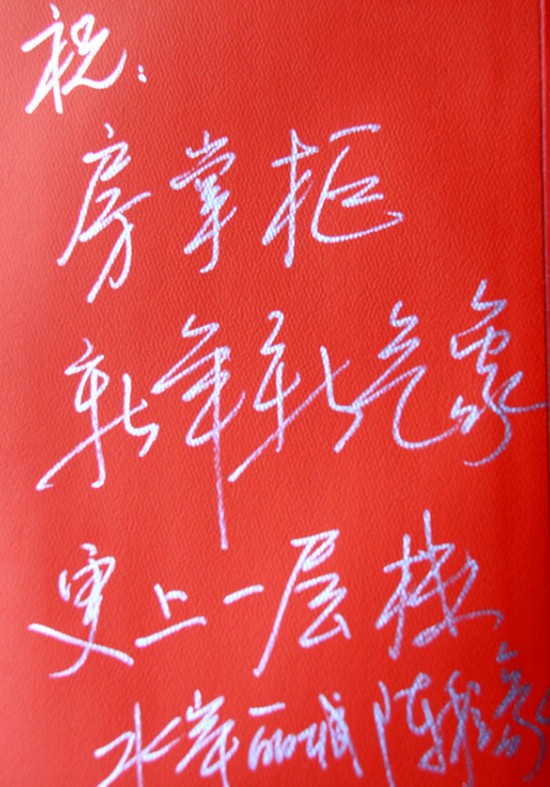 祝：
房掌柜
新年新气象
更上一层楼
水岸丽城 陈